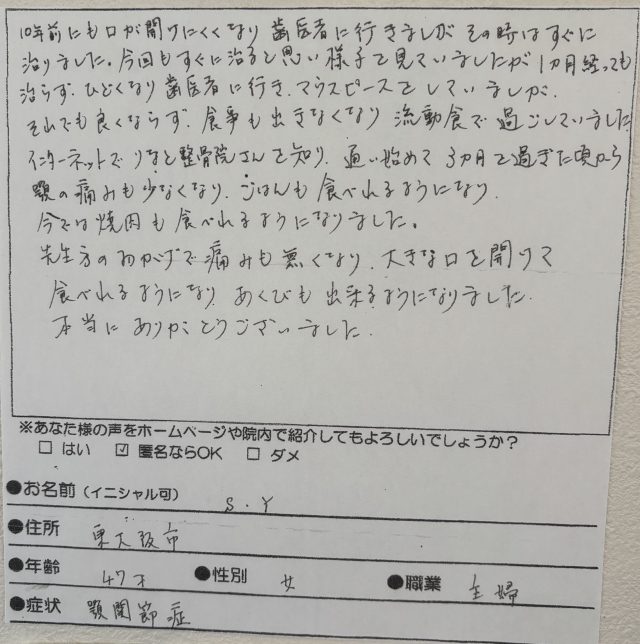 10年前にも口が開けにくくなり歯医者に行きましが その時はすぐに
治りました。今回もすぐに治ると思い様子で見ていましたが 1カ月経っても
治らず、ひどくなり歯医者に行き、マウスピースでしていましが、
それでも良くならず、食事も出きなくなり 流動食で過ごしていました
インターネットでりなと整骨院さんを知り、通い始めて 3カ月で過ぎた頃から
顎の痛みも少なくなり、ごはんも食べれるようになり、
今では焼肉も食べれるようになりました。
先生方のおかげで痛みも無くなり、大きな口を開けて
食べれるようになり あくびも出来るようになりました。
本当にありがとうございました。
※あなた様の声をホームページや院内で紹介してもよろしいでしょうか？
□ はい ☑ 匿名ならOK □ ダメ
●お名前（イニシャル可） S.Y
●住所 東大阪市
●年齢 47才 ●性別 女 ●職業 主婦
●症状 顎関節症